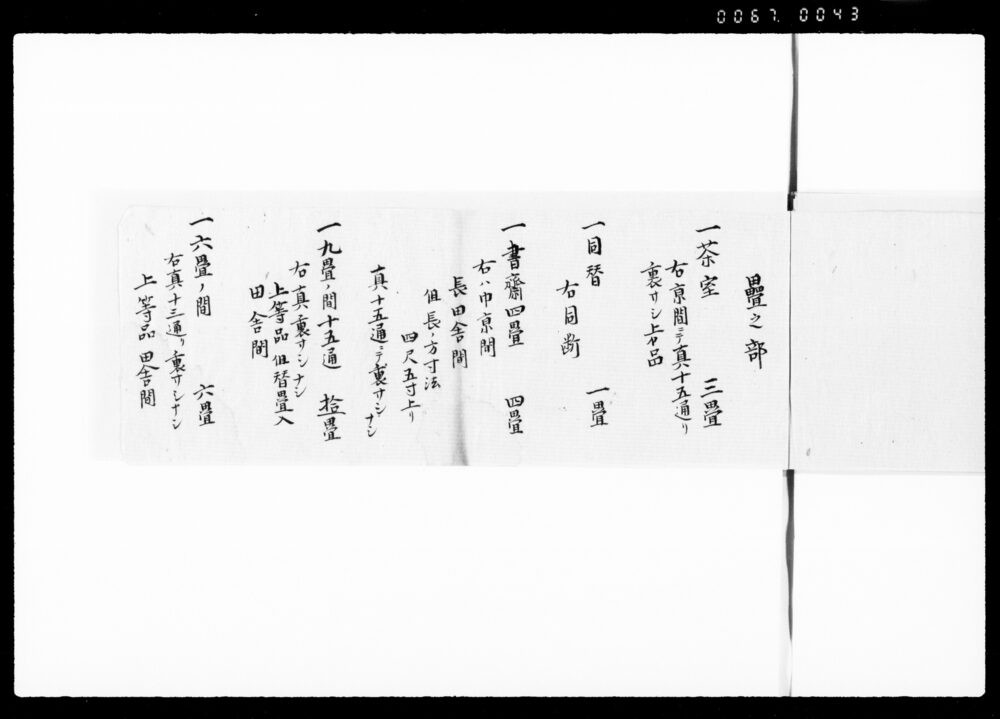 0067. 0043
疊之部
一茶室 三畳
右京間ニテ真十五通リ
裏サシ上品
一同替 一畳
右同断
一書齋四畳 四畳
右ハ巾京間
長田舎間
但長ノ方寸法
四尺五寸上リ
真十五通ニテ裏サシナシ
一九畳ノ間十五通 拾畳
右真裏サシナシ
上等品但替畳入
田舎間
一六畳ノ間 六畳
右真十三通リ裏サシナシ
上等品田舎間